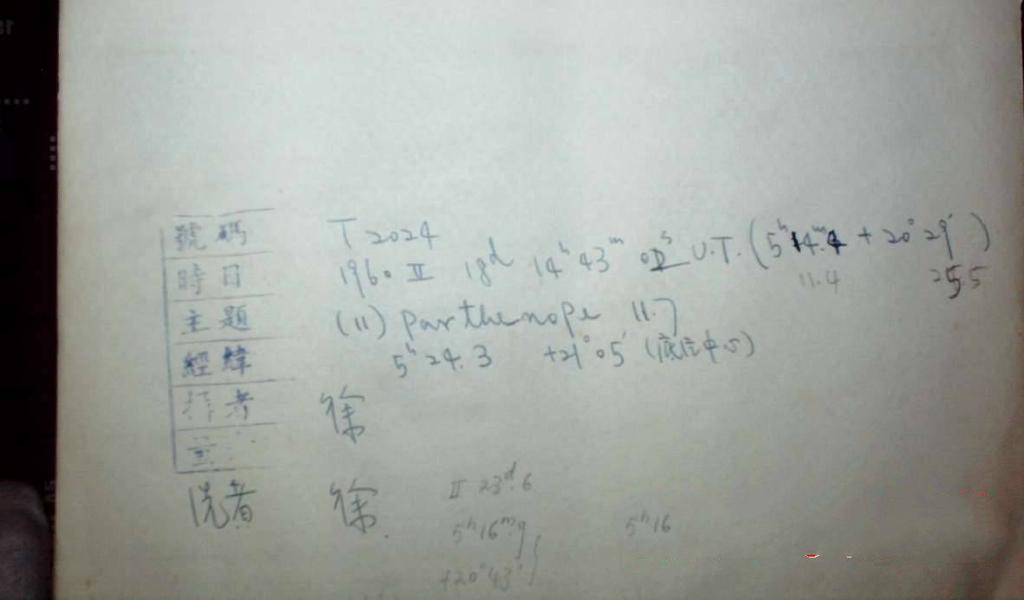 號碼 T 2024
時日 1960 II 18d 14h 43m U.T. (5h 14m.4 + 20° 29′)
11.4 25.5
主題 (11) Parthenope 11.7
經緯 5h 24.3 +21° 05′ (底片中心)
徐
洗者 徐
II 23d.6
5h 16m.9 5h 16
+20° 43′